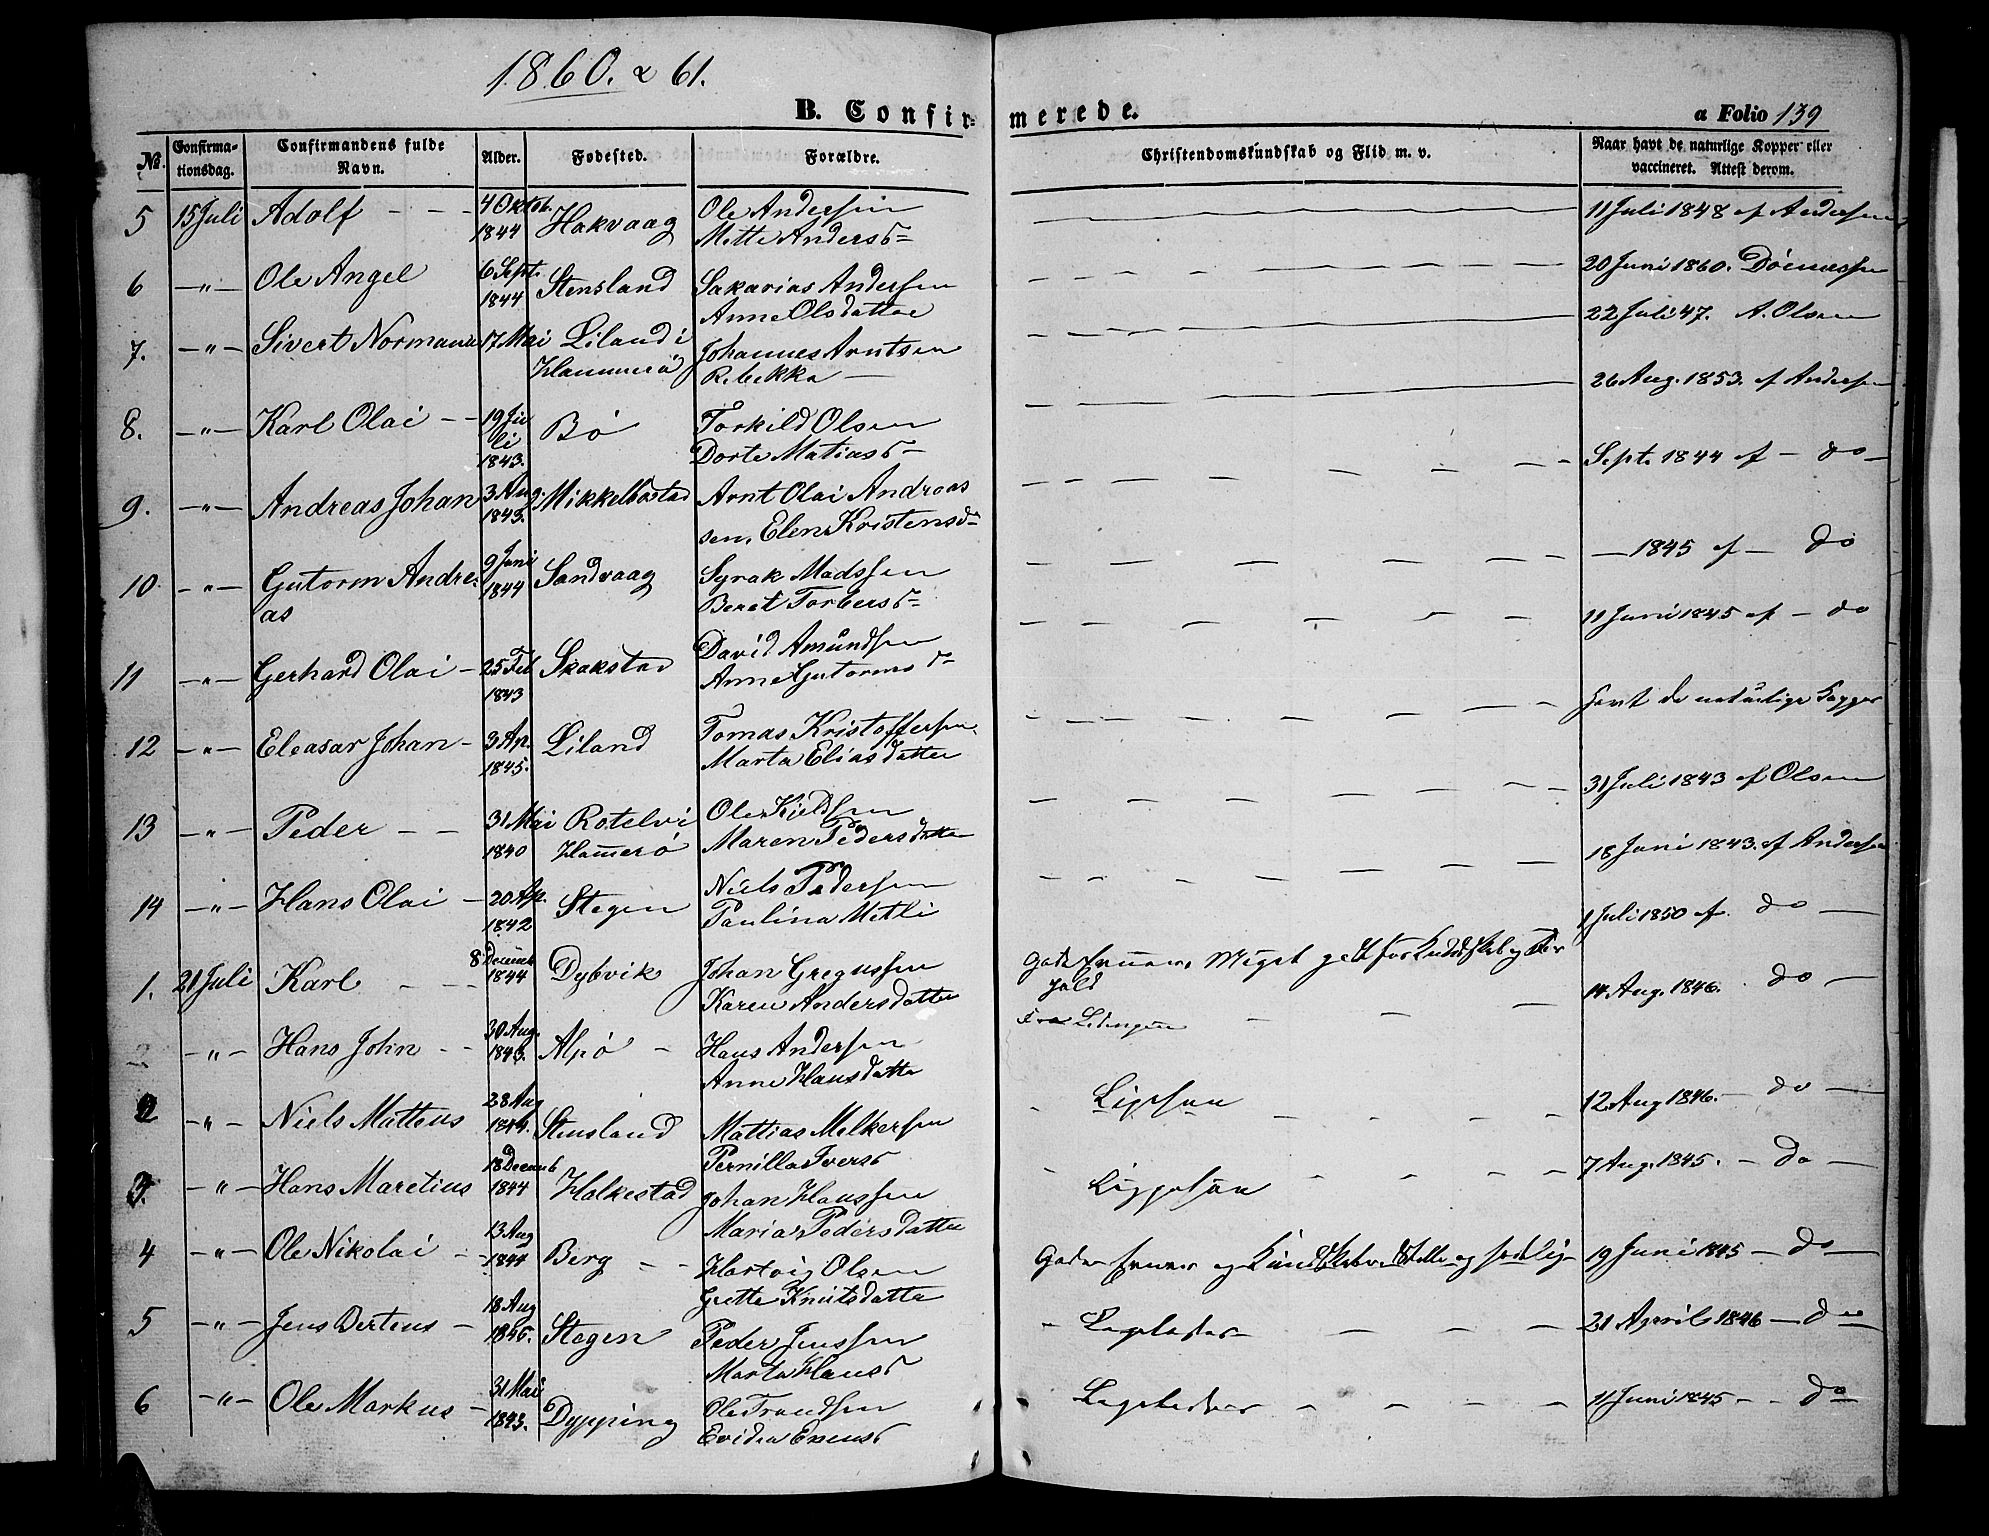 1860. & 61.
B. Confirmerede.
a Folio 139
No.
Confirmationsdag.
Confirmandens fulde Navn.
Alder.
Fødested.
Forældre.
Christendomskundskab og Flid m. v.
Naar havt de naturlige Kopper eller vaccineret. Attest derom.
5 15 Juli Adolf - - - 4 Oktob. 1844 Hakvaag Ole Andersen
Mette Andersd= 11 Juli 1848 af Andersen
6 -"- Ole Angel 6 Sept. 1844 Stensland Sakarias Andersen
Anne Olsdatter 20 Juni 1860.
7. -"- Sivert Normann 17 Mai Liland i Hammerø Johannes Arntsen
Rebekka — 22 Juli 47. A. Olsen
8. -"- Karl Olai - 19 Juli 1843. Bø Torkild Olsen
Dorte Matiasd- 26 Aug. 1853. af Andersen
9. -"- Andreas Johan 3 Aug. 1843. Mikkelbostad Arnt Olai Andreas
sen, Elen Kristensd= Sept. 1844 af - do -
10. -"- Gutorm Andre-
as 9 Juni 1844 Sandvaag Syrak Madssen
Beret Torbersd= — 1845 af — do
11 -"- Gerhard Olai - 25 Feb 1843 Skakstad David Amundsen
Anne Gutorms d- 11 Juni 1845 af - do
12 -"- Eleasar Johan - 3 Ap. 1845. Liland Tomas Kristoffersen
Marta Eliasdatter havt de naturlige Kopper
13 -"- Peder - - 31 Mai 1840 Rotelvi Hamerø Ole Kjeldsen
Maren Pedersdatter 31 Juli 1843 af Olsen
14 -"- Hans Olai - 20 Ap. 1842 Stegen Niels Pedersen
Paulina Metli 18 Juni 1843. af Andersen
1 Juli 1850 af. do —
1. 21 Juli Karl - - 8 Decemb 1844 Dybvik Johan Gregussen
Karen Andersdatter Meget godt for Kundskab og
14 Aug. 1846. do -
-"- Hans John - - 30 Aug. 1843. Alpø - Hans Andersen
Anne Hansdatter Fra Lødingen
2 -"- Niels Matteus 28 Aug 1844. Stensland Mattias Melkersen
Pernilla Iversd Ligesaa 12 Aug 1846. — do —
3. -"- Hans Maretius 18 Decemb 1844 Halkestad Johan Hanssen
Maria Pedersdatter Ligesaa 7 Aug. 1845. - do -
4 -"- Ole Nikolai - 13 Aug 1844 Berg - - Hartvig Olsen
Grette Knutsdatter Gode Evner og Kundskaber, Stille og sædelig 19 Juni 1845 - do -
5 -"- Jens Berteus - 18 Aug 1845. Stegen Peder Jenssen
Marta Hansd 21 April 1846 — do
6 -"- Ole Markus - 31 Mai 1843. Dypping Ole Trondsen
Evidea Enensd 11 Juni 1845 - - do